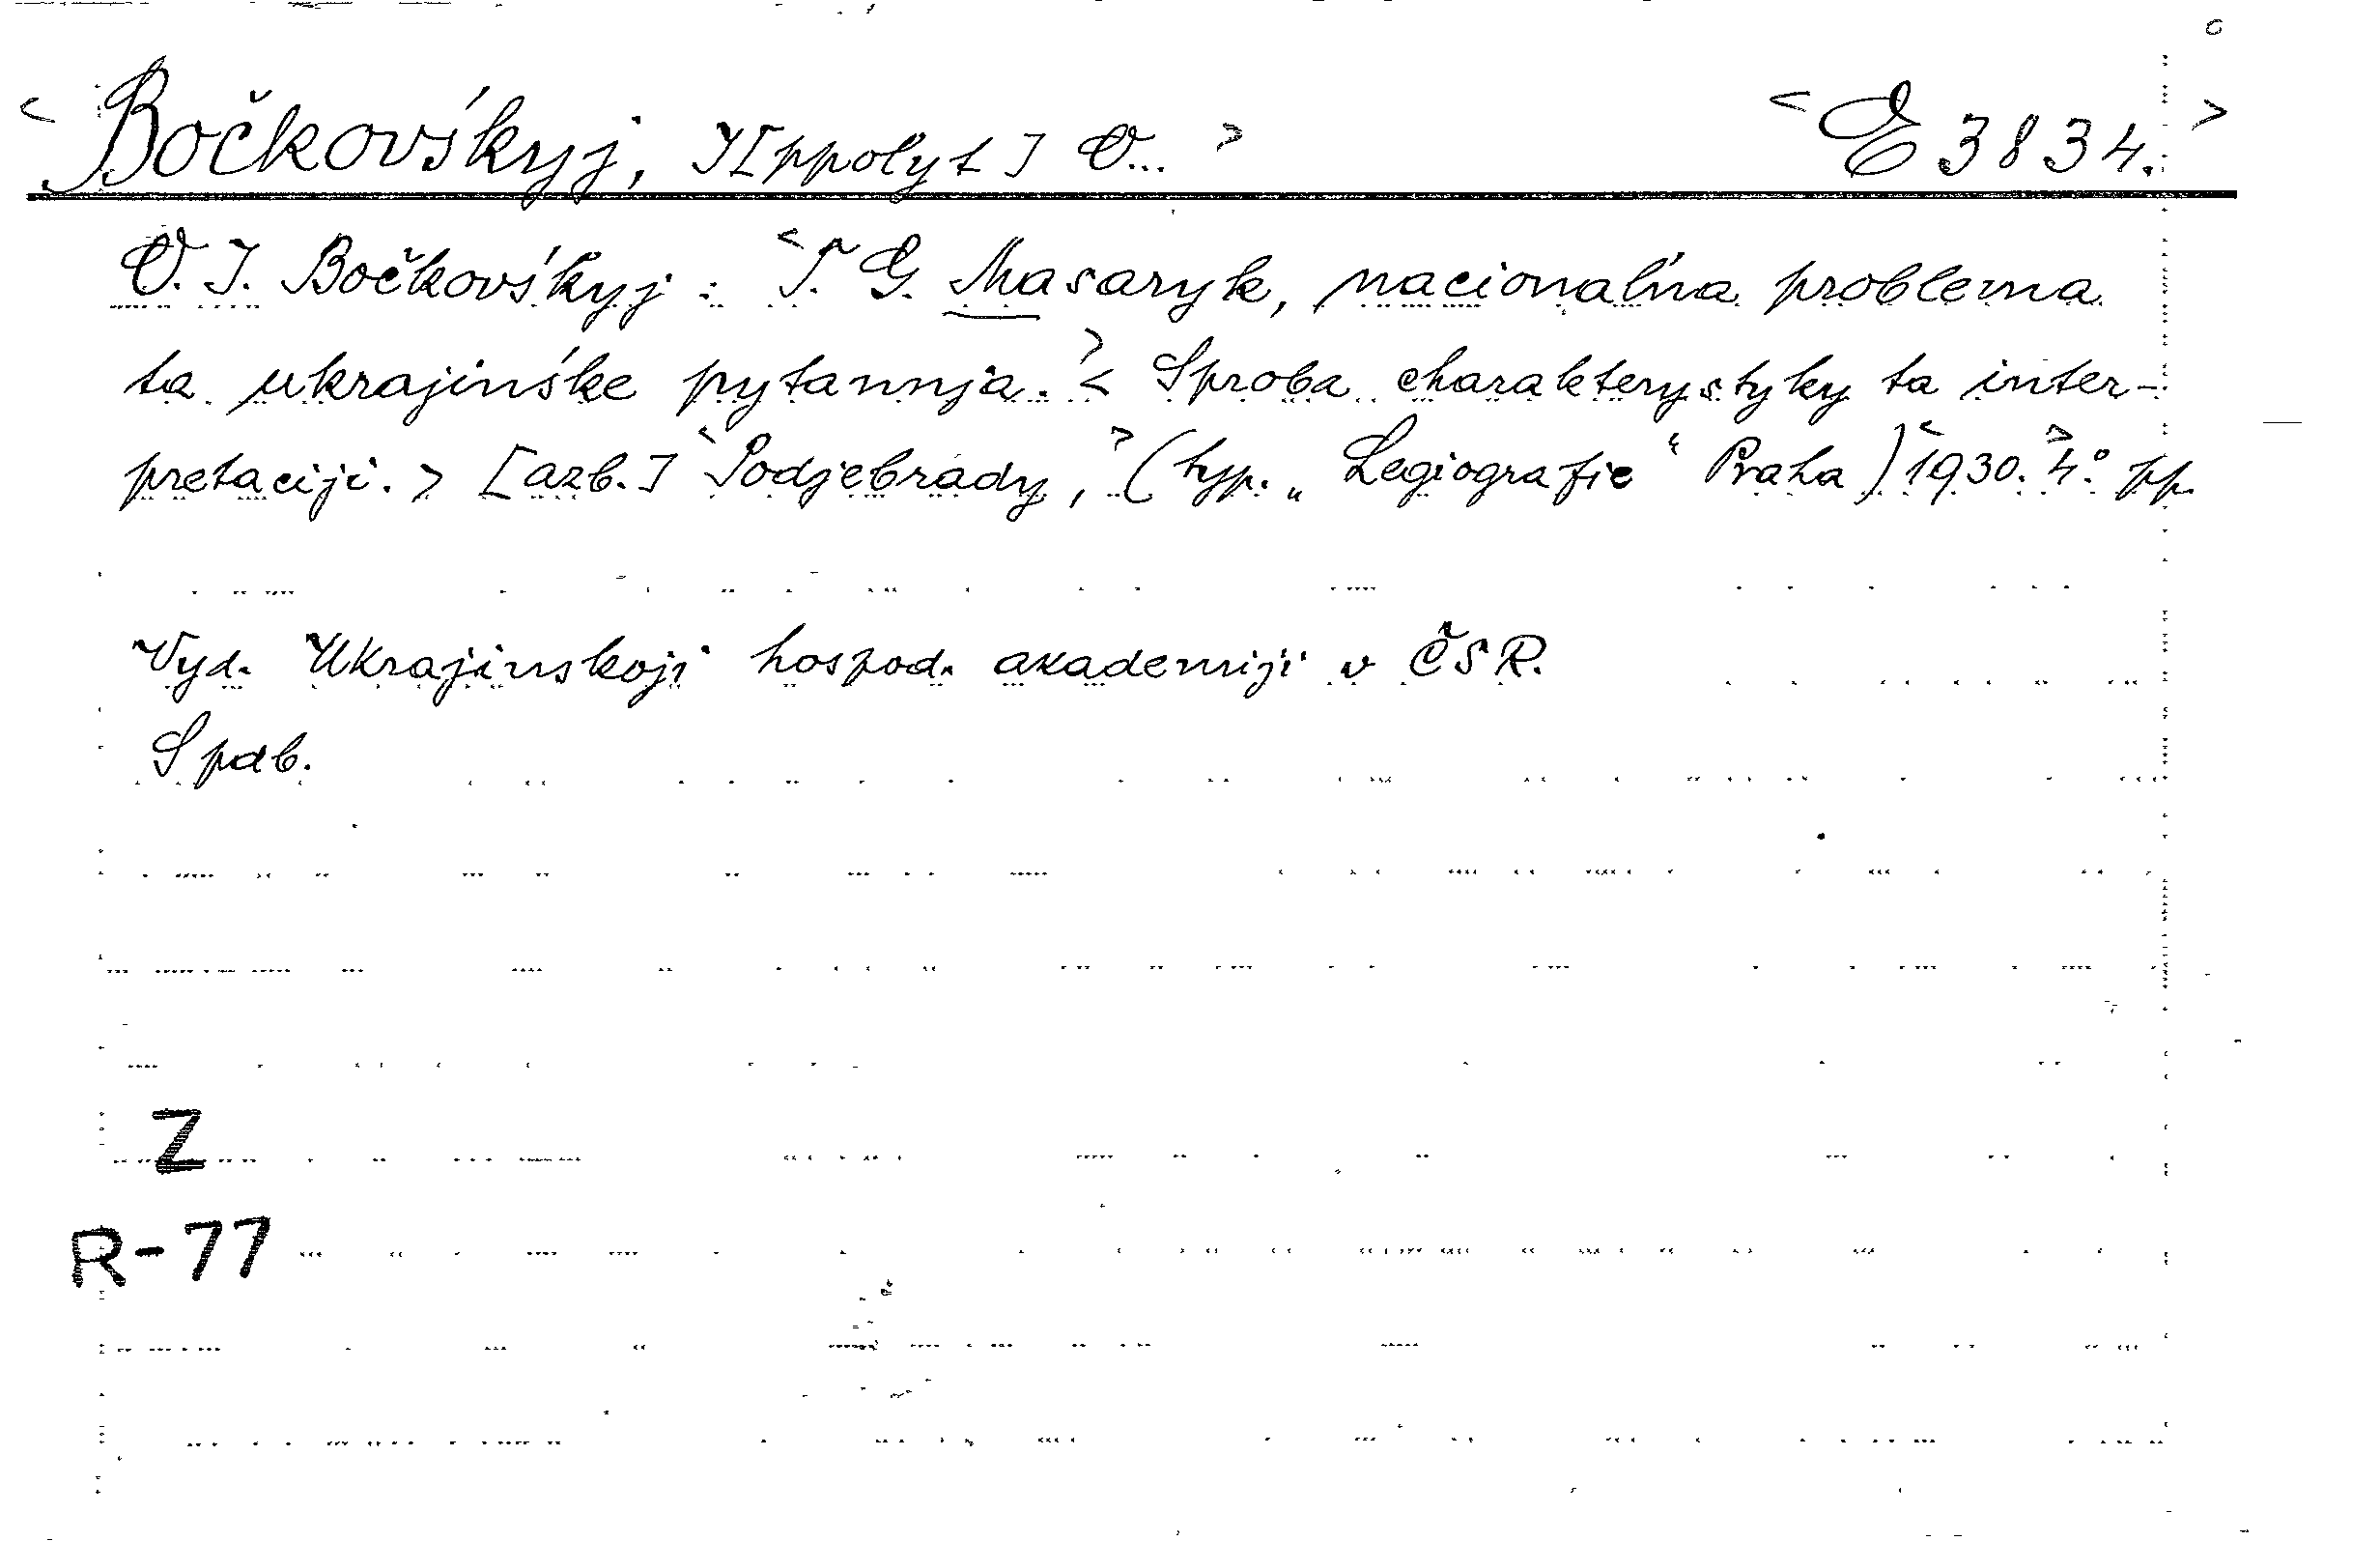 < Bočkovśkyj, I[ppolyt] O... > < E 3834. >
O. I. Bočkovśkyj: < T. G. Masaryk, nacional'na problema
ta ukrajinśke pytannja. > < Sproba charakterystyky ta inter-
pretaciji. > [azb.] < Podjebrady, > (typ. „Legiografie“ Praha) < 1930. > 4.° pp.
Vyd. Ukrajinskoji hospod. akademiji v ČSR.
Spdb.
Z
R-77